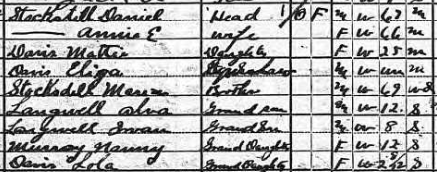 Stocksdill Daniel Head 1/0 F M W 67 M
—— Annie E Wife F W 66 M
Davis Mattie Daughter F W 25 M
Davis Eliza M W un M
Stocksdill Brother M W 69 Wd
Langwell Alva Grand son M W 12 S
Langwell Grand Son M W 8 S
Murray Nanny Grand Daughter F W 12 S
Davis Lola Grand Daughter F W S